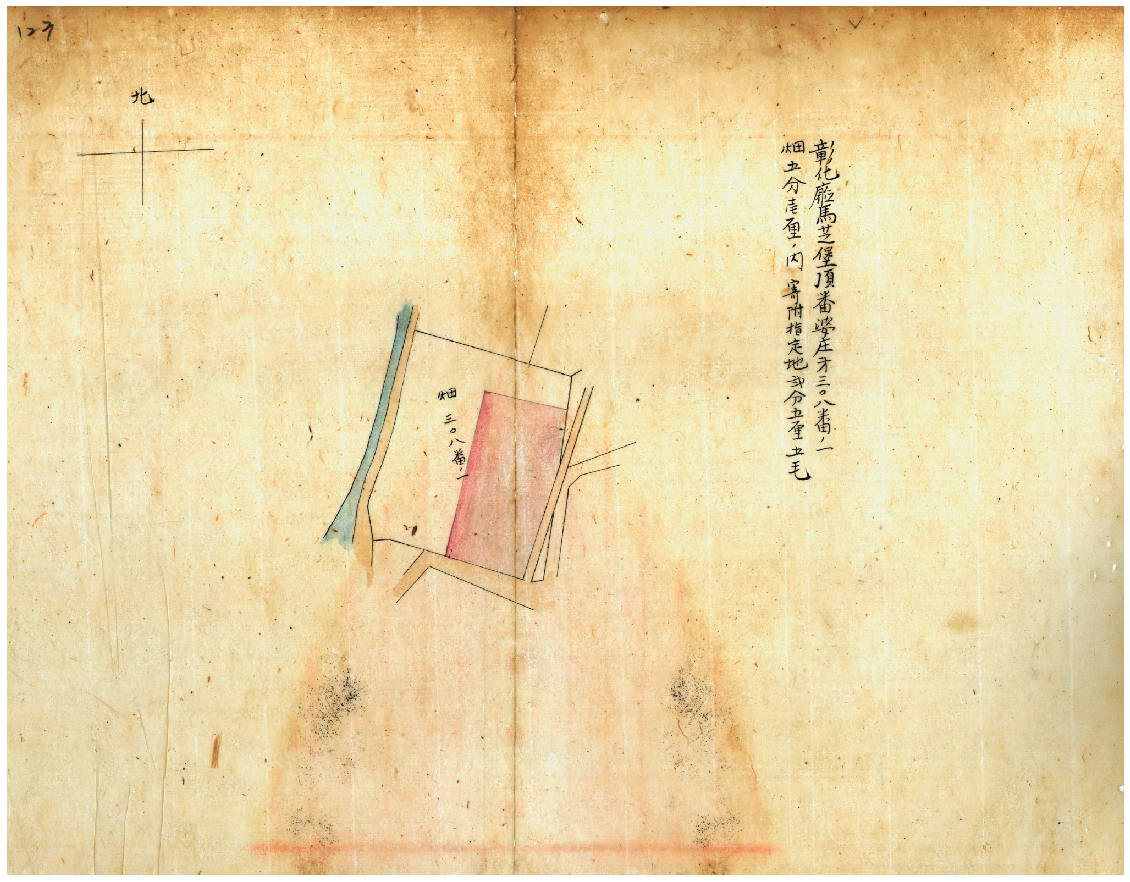 彰化廳馬芝堡頂番婆庄才三〇八番ノ一
畑五分壱厘ノ内 寄附指定地弐分五厘五毛
北
畑 三〇八番ノ一